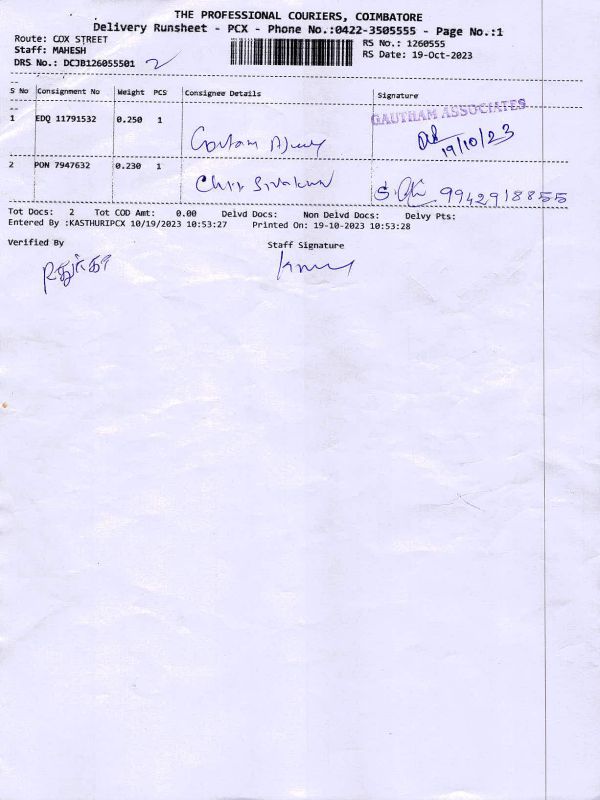 THE PROFESSIONAL COURIERS, COIMBATORE
Delivery Runsheet - PCX - Phone No.:0422-3505555 - Page No.:1
Route: COX STREET RS No.: 1260555
Staff: MAHESH RS Date: 19-Oct-2023
DRS No.: DCJB126055501 2
S No Consignment No Weight PCS Consignee Details Signature
1 EDQ 11791532 0.250 1 GAUTHAM ASSOCIATES
19/10/23
2 PON 7947632 0.230 1 9942918855
Tot Docs: 2 Tot COD Amt: 0.00 Delvd Docs: Non Delvd Docs: Delvy Pts:
Entered By :KASTHURIPCX 10/19/2023 10:53:27 Printed On: 19-10-2023 10:53:28
Verified By Staff Signature